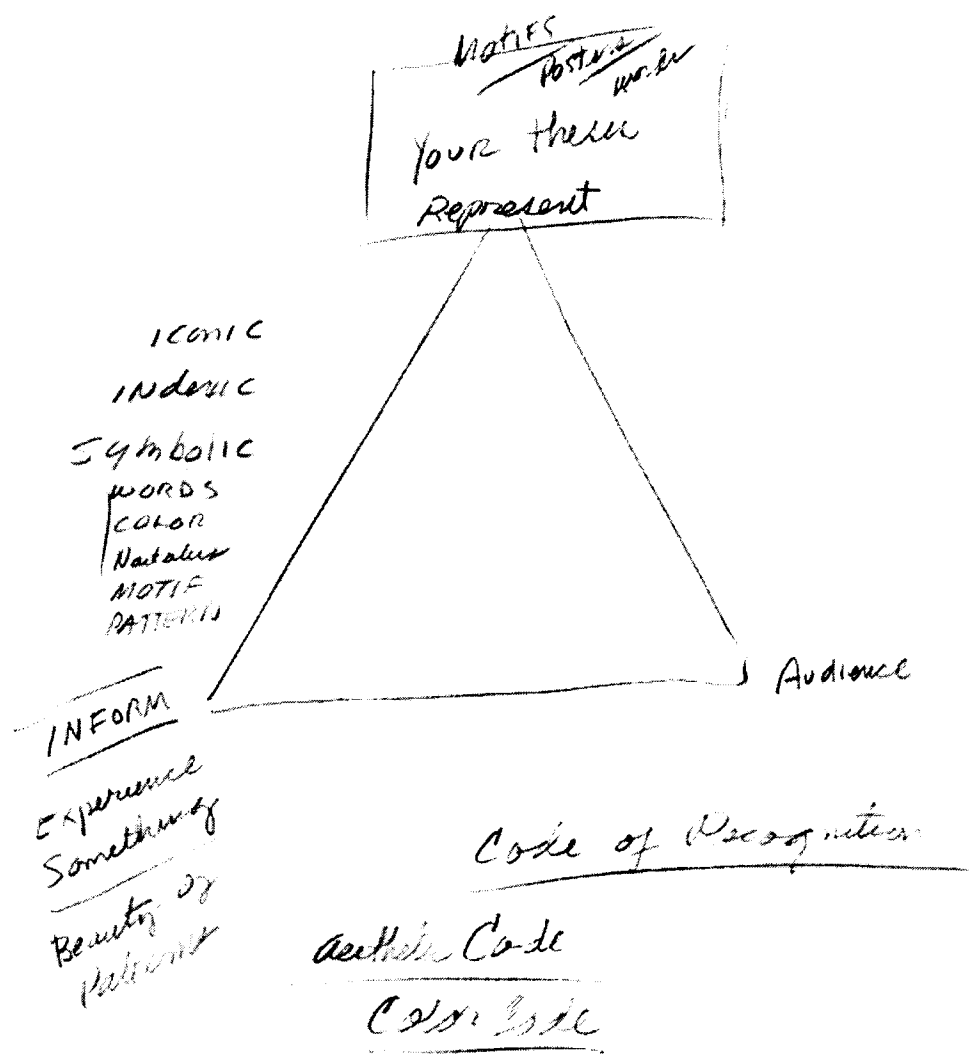 MOTIFS
Posters
Your thesis
Represent
ICONIC
INdexic
Symbolic
WORDS
COLOR
MOTIF
PATTERN
INFORM
Audience
Experience
Something
Beauty of
Patterns
Code of Recognition
aesthetic Code
Color Code